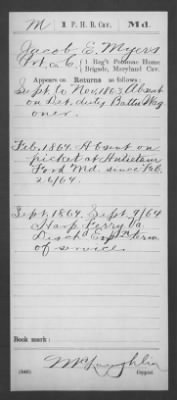 M | 1 P. H. B. Cav. | Md.
Jacob E. Myers
Pvt., Co. C, 1 Reg't Potomac Home
Brigade, Maryland Cav.
Appears on Returns as follows:
Sept. to Nov. 1863 Absent
on Det. duty Batln Wag
oner.
Feb. 1864 Absent on
picket at Antietam
Ford Md. since Feb.
26/64.
Sept. 1864, Sept. 9/64
Harp. Ferry Va.
Disch. Exp. Term
of service.
Book mark:
McLaughlin
(546) Copyist.